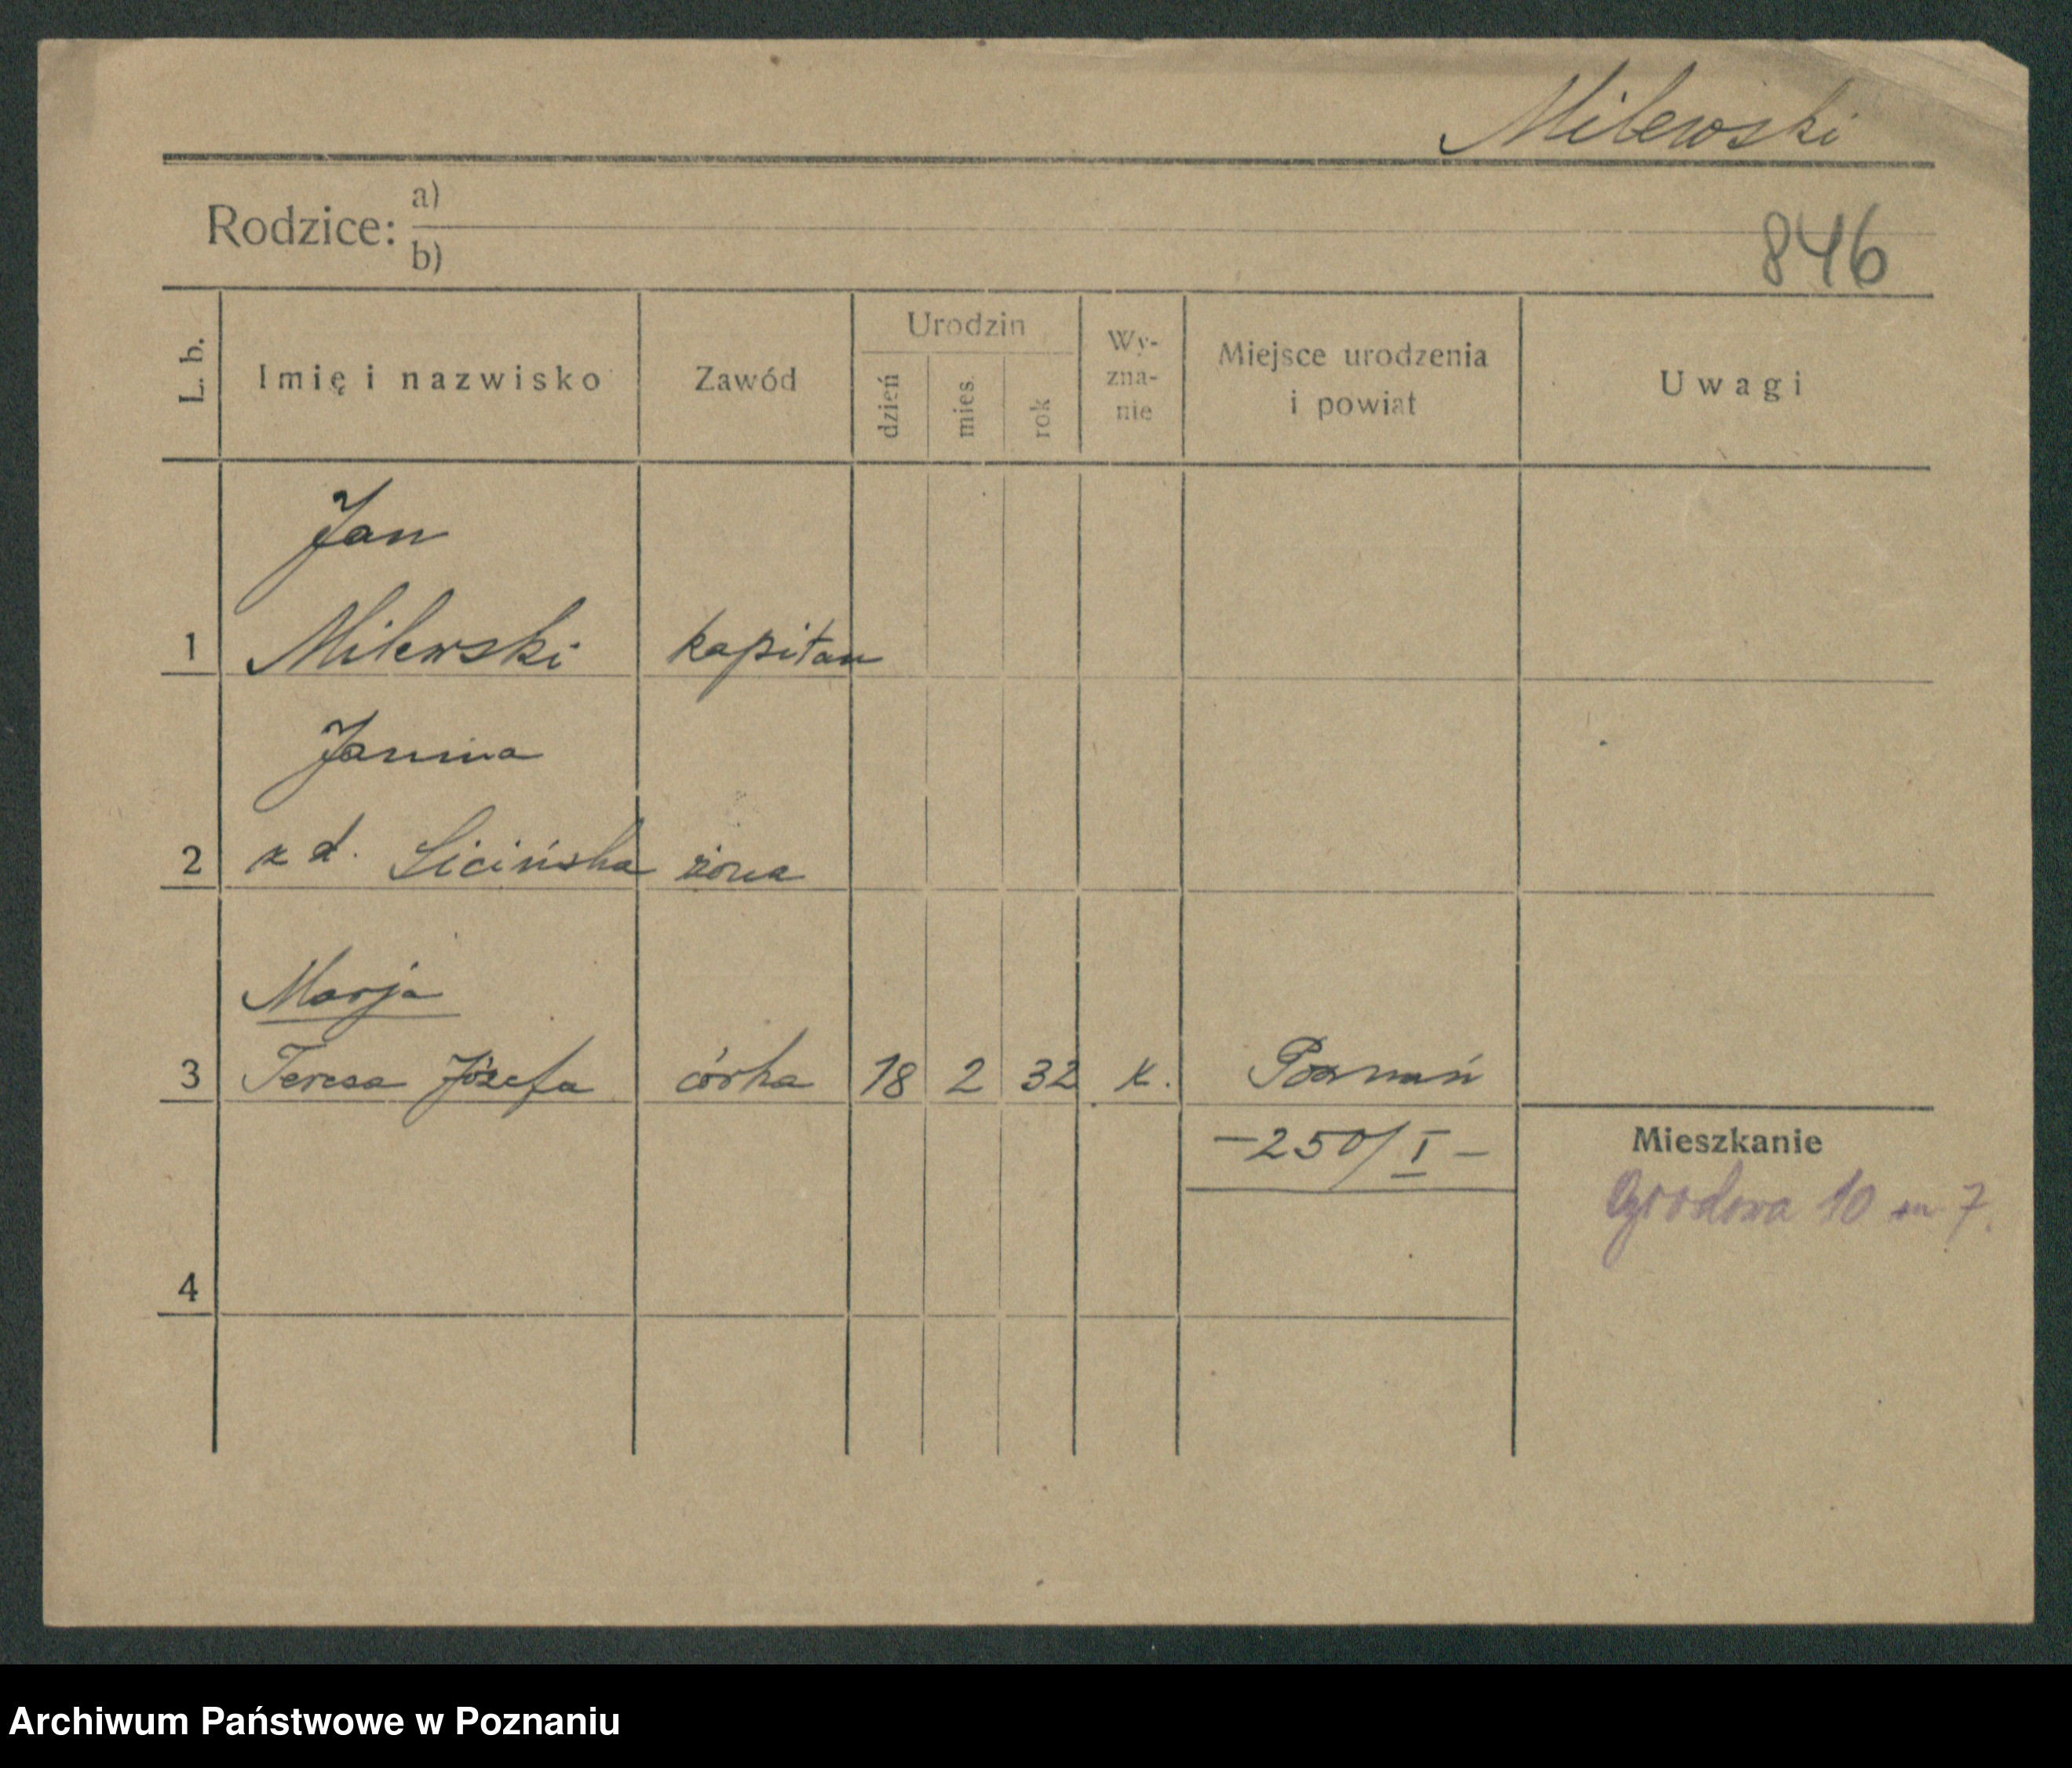 Milewski
Rodzice: a)
b)
846
L. b.
Imię i nazwisko
Zawód
Urodzin
dzień
mies.
rok
Wy-
zna-
nie
Miejsce urodzenia
i powiat
Uwagi
Jan
1 Milewski kapitan
Janina
2 z d. Licińska żona
Marja
3 Teresa Józefa córka 18 2 32 k. Poznań
-250/I-
Mieszkanie
Ogrodowa 10 m 7.
4
Archiwum Państwowe w Poznaniu